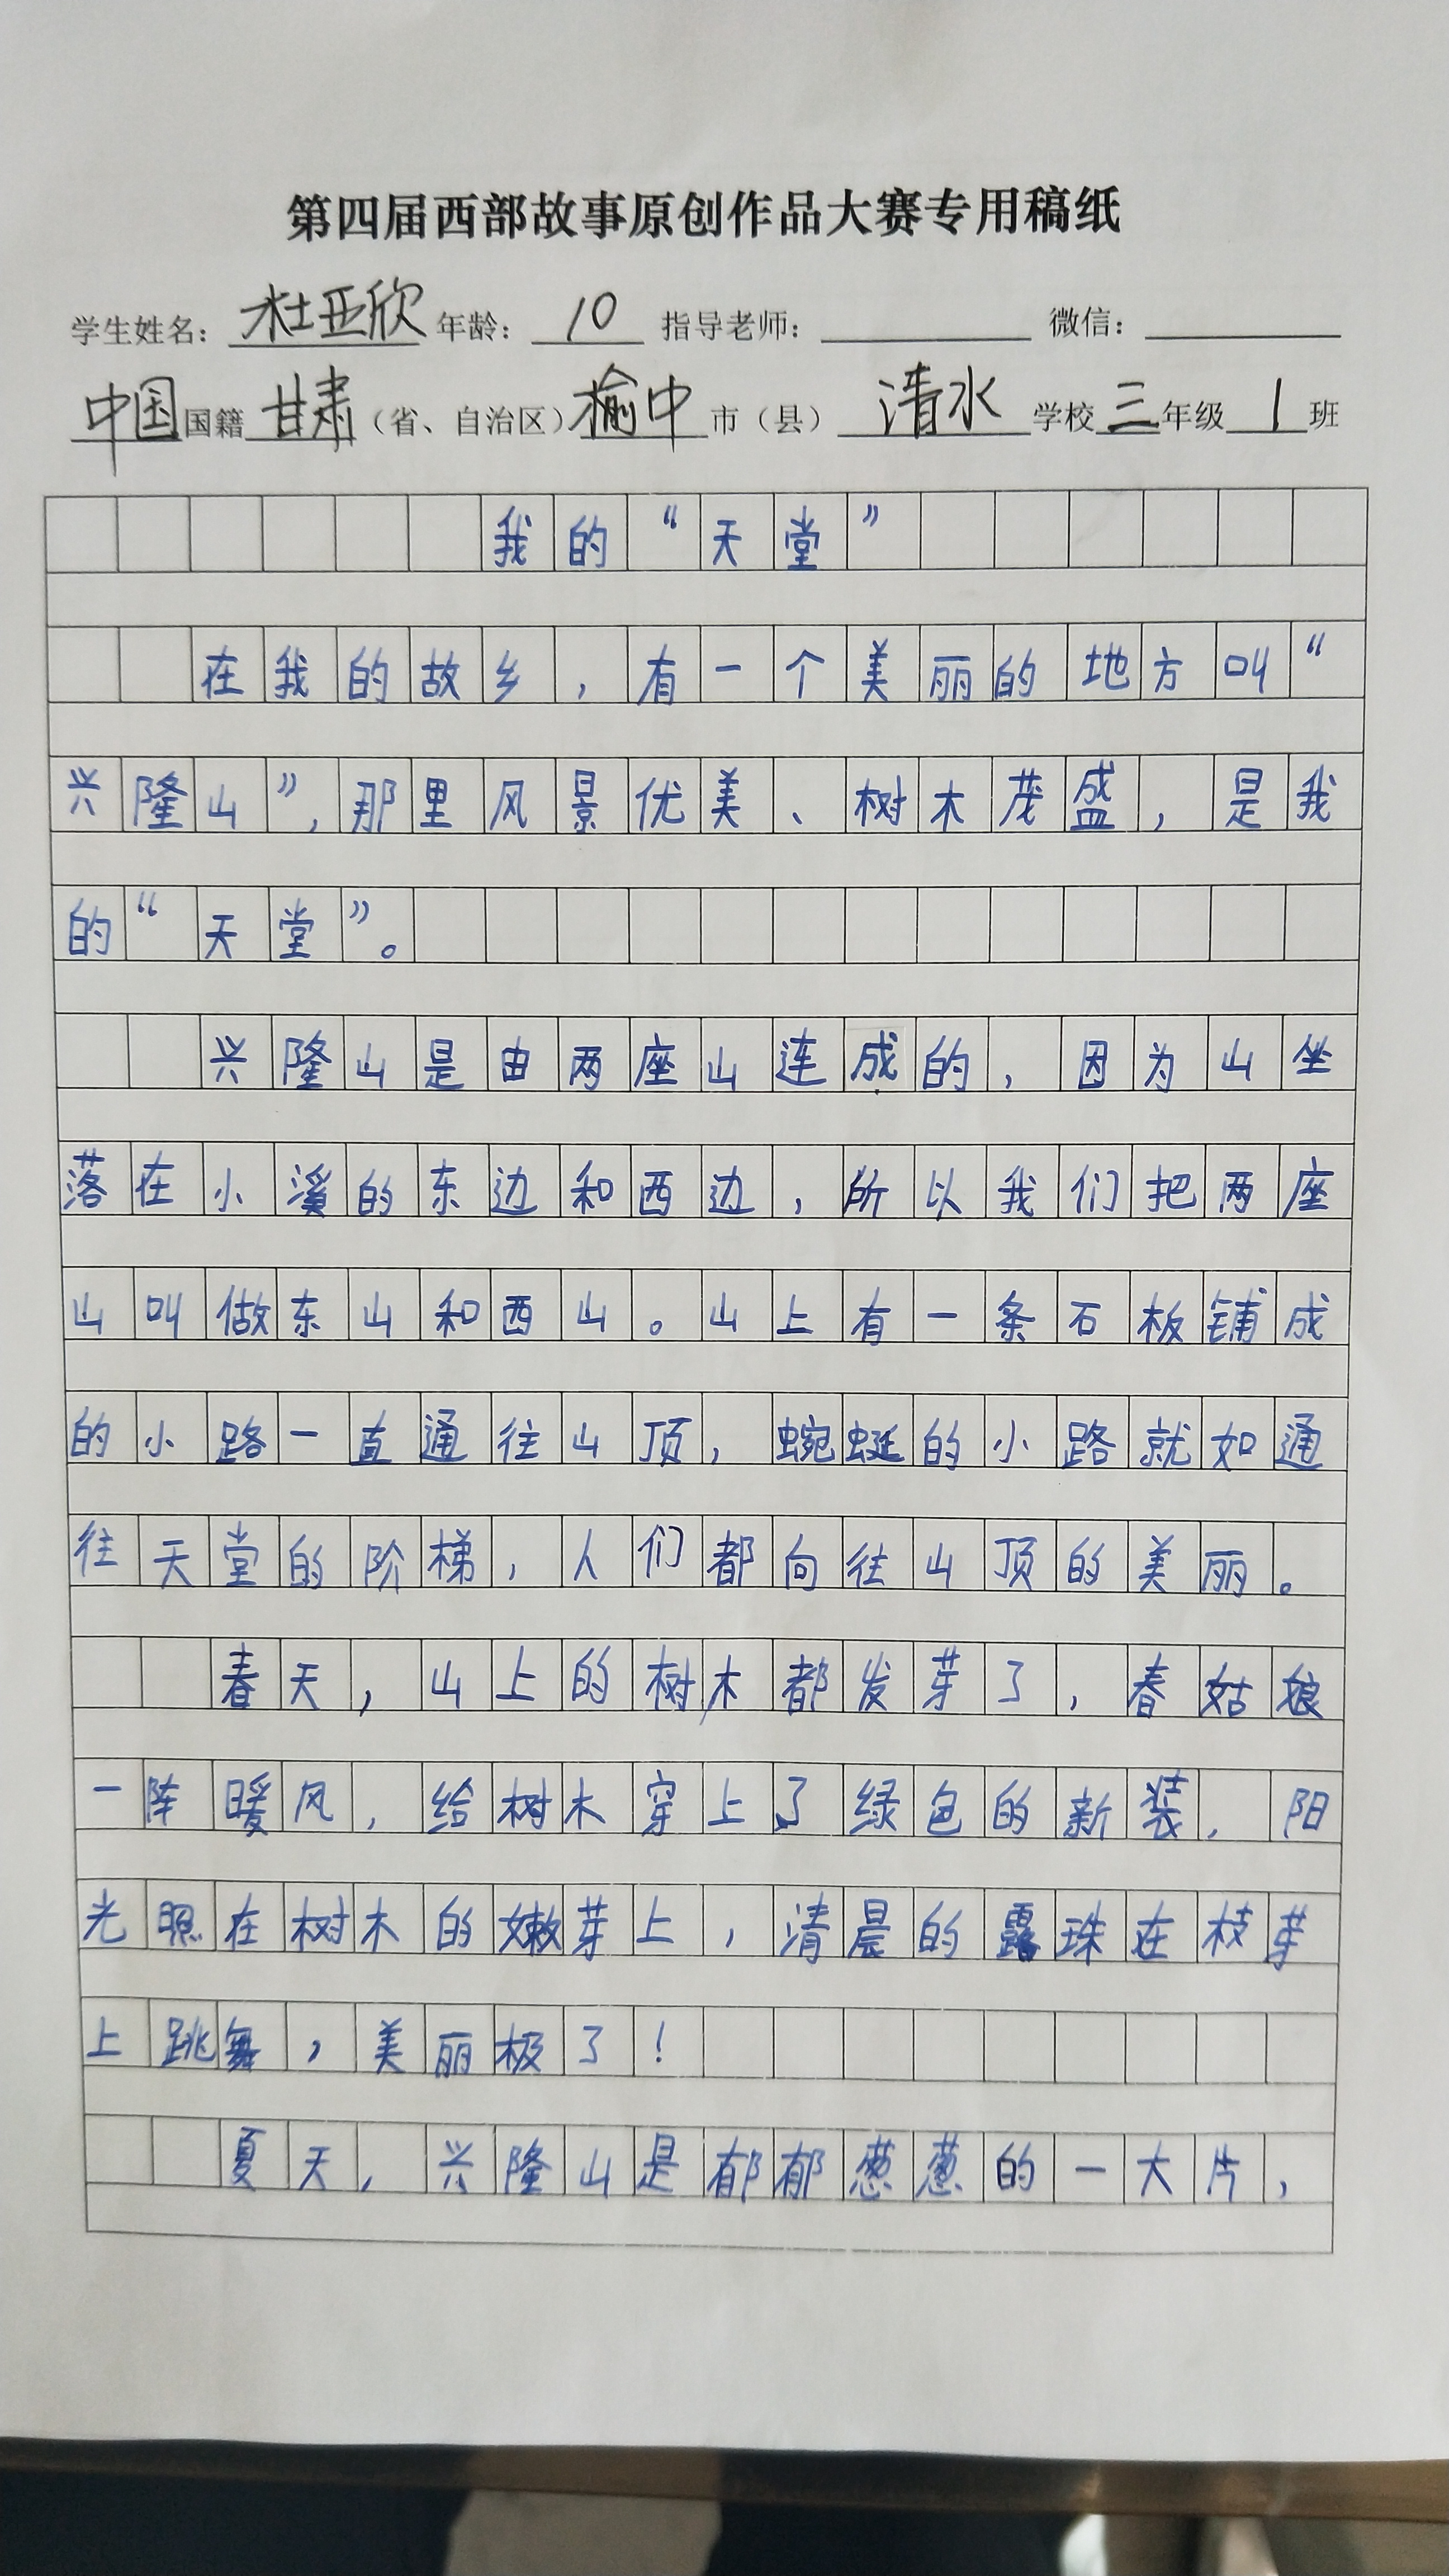 第四届西部故事原创作品大赛专用稿纸
学生姓名：杜亚欣 年龄：10 指导老师： 微信：
中国国籍甘肃（省、自治区）榆中市（县）清水学校三年级1班
我的“天堂”
在我的故乡，有一个美丽的地方叫“
兴隆山”，那里风景优美、树木茂盛，是我
的“天堂”。
兴隆山是由两座山连成的，因为山坐
落在小溪的东边和西边，所以我们把两座
山叫做东山和西山。山上有一条石板铺成
的小路一直通往山顶，蜿蜒的小路就如通
往天堂的阶梯，人们都向往山顶的美丽。
春天，山上的树木都发芽了，春姑娘
一阵暖风，给树木穿上了绿色的新装，阳
光照在树木的嫩芽上，清晨的露珠在枝芽
上跳舞，美丽极了！
夏天，兴隆山是郁郁葱葱的一大片，